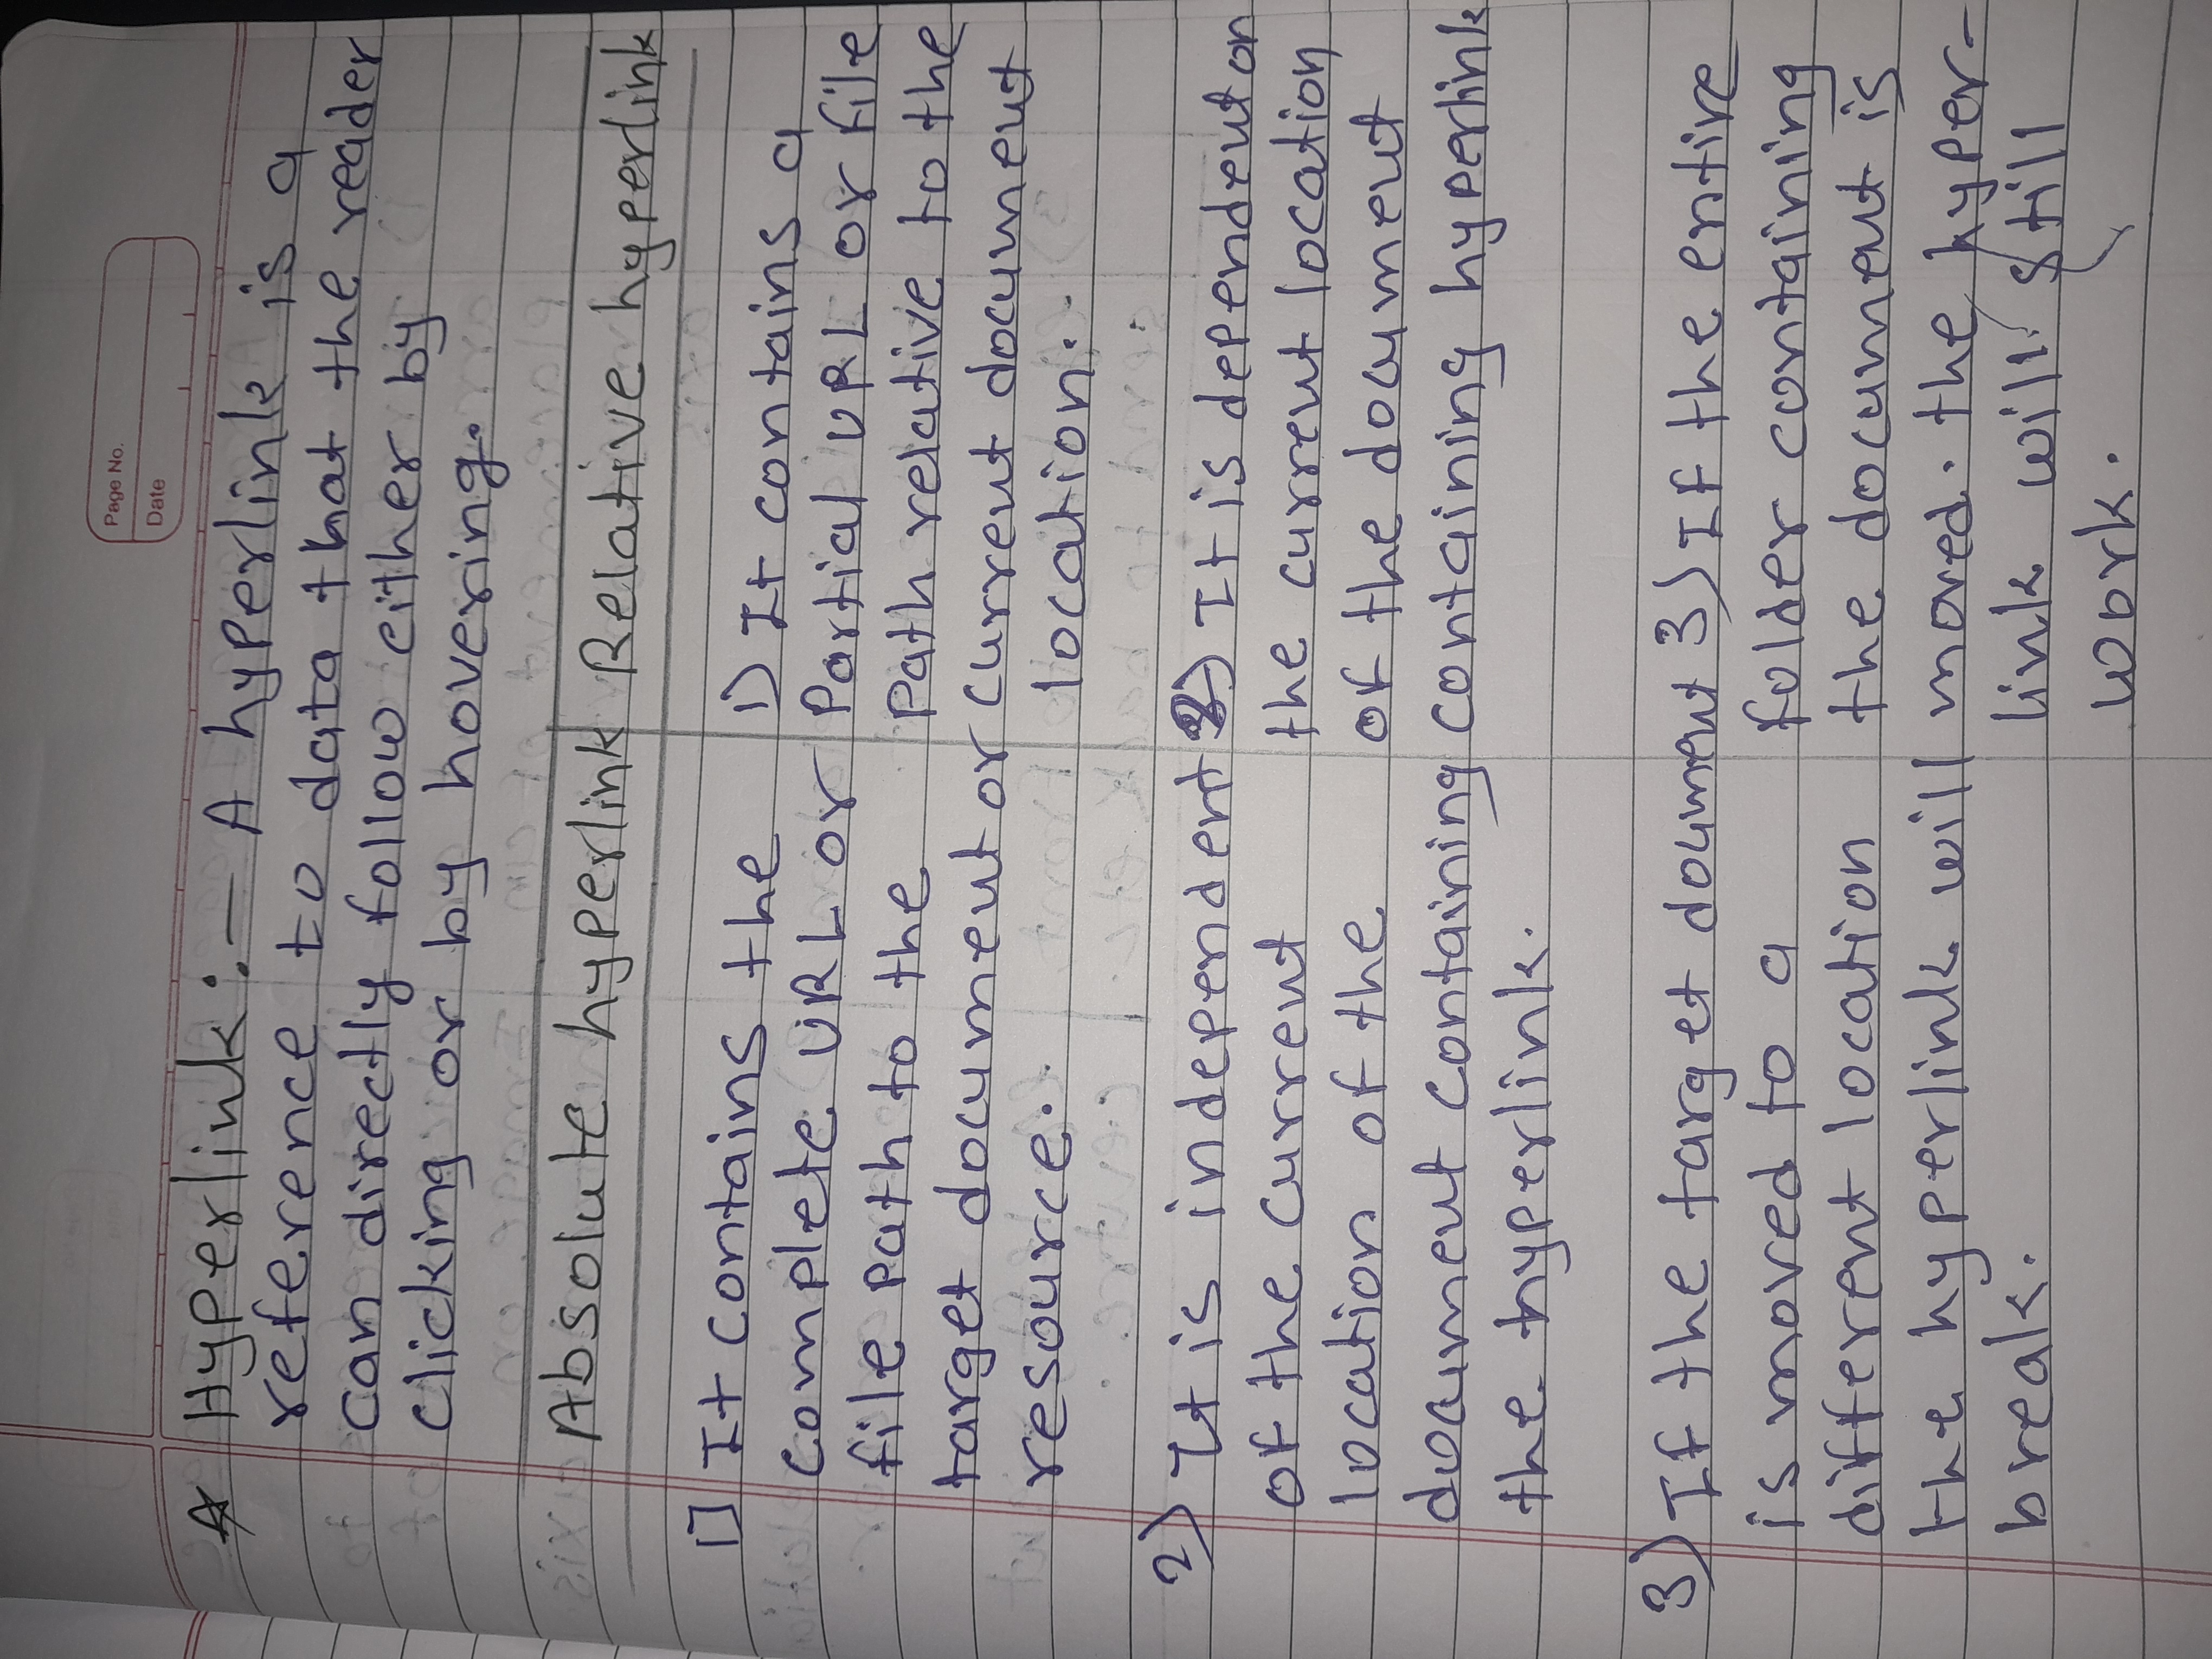 Page No.
Date
☆ Hyperlink :- A hyperlink is a
reference to data that the reader
can directly follow either by
clicking or by hovering.
Absolute hyperlink Relative hyperlink
1) It contains the
complete URL or
file path to the
target document or
resource.
1) It contains a
Partial URL or file
path relative to the
current document
location.
2) It is independent
of the current
location of the
document containing
the hyperlink.
2) It is dependent on
the current location
of the document
containing hyperlink
3) If the target document
is moved to a
different location
the hyperlink will
break.
3) If the entire
folder containing
the document is
moved. the hyper-
link will still
work.